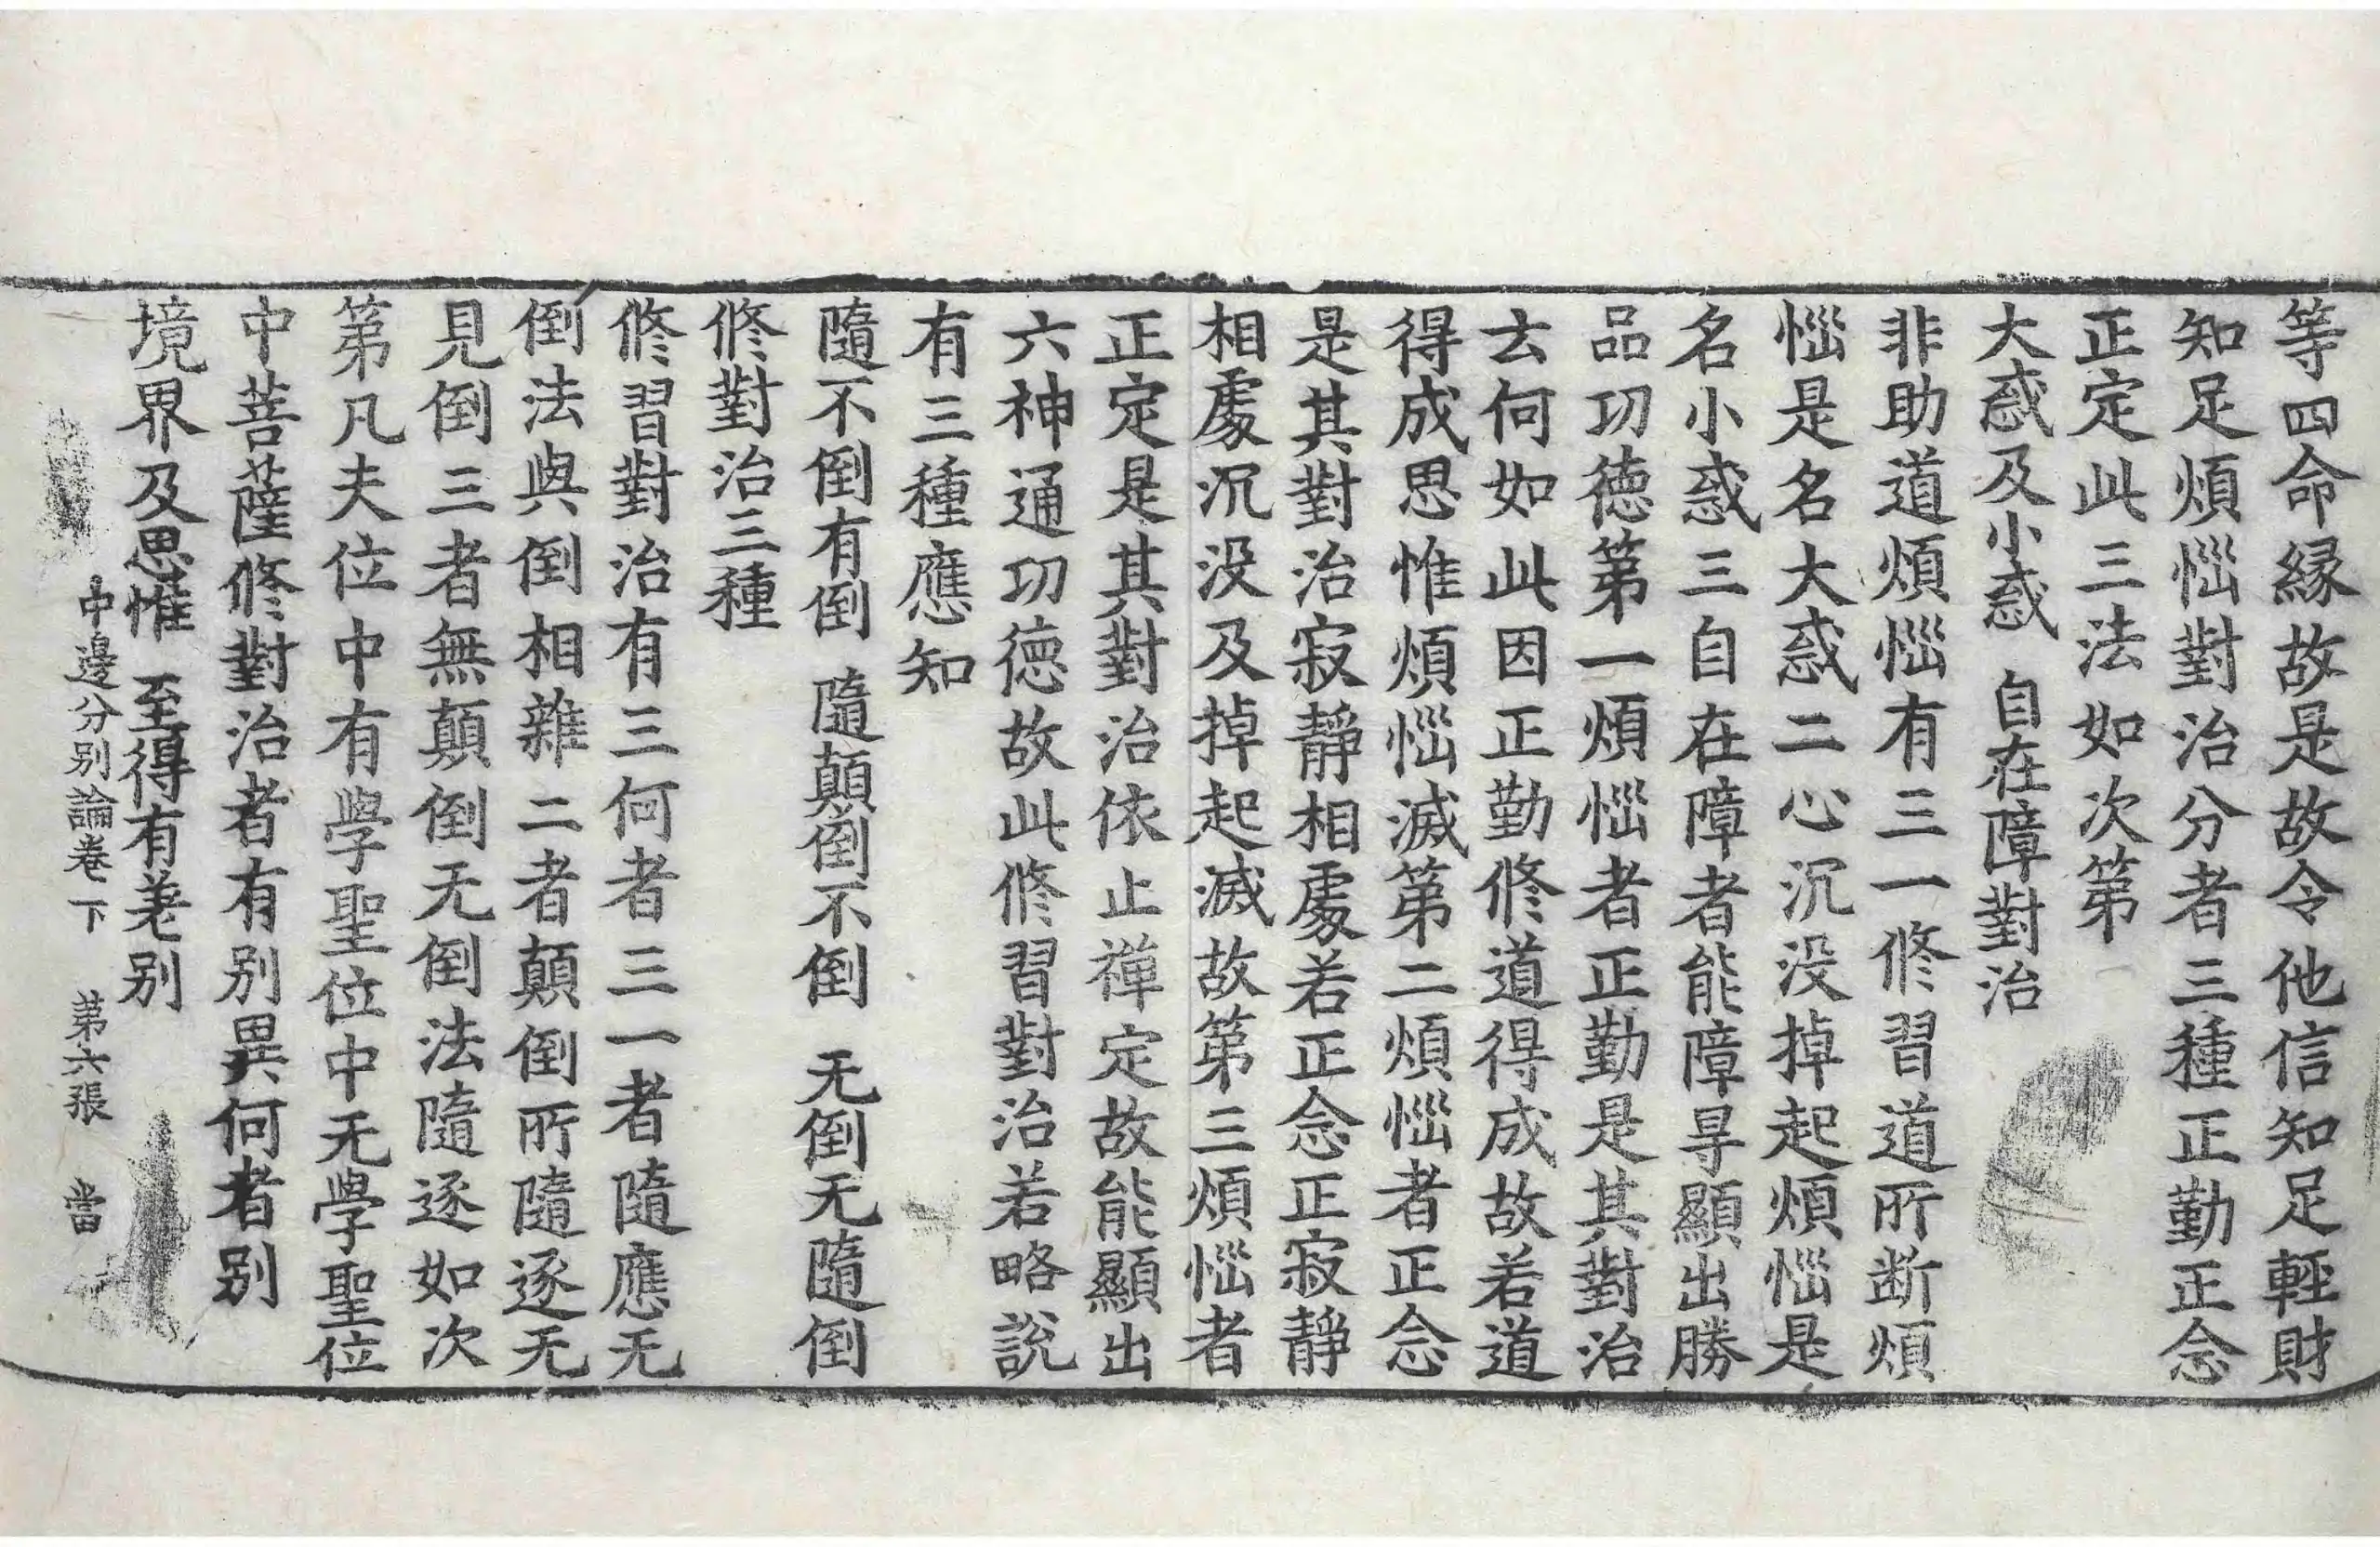 等四命縁故是故令他信知足輕財
知足煩惱對治分者三種正勤正念
正定此三法如次第
大惑及小惑　自在障對治
非助道煩惱有三一修習道所断煩
惱是名大惑二心沉没掉起煩惱是
名小惑三自在障者能障㝵顯出勝
品功德第一煩惱者正勤是其對治
云何如此因正勤修道得成故若道
得成思惟煩惱滅第二煩惱者正念
是其對治寂靜相處若正念正寂靜
相處沉没及掉起滅故第三煩惱者
正定是其對治依止禪定故能顯出
六神通功德故此修習對治若略說
有三種應知
隨不倒有倒　隨顛倒不倒　无倒无隨倒
修對治三種
修習對治有三何者三一者隨應无
倒法與倒相雜二者顛倒所隨逐无
見倒三者無顛倒无倒法隨逐如次
第凡夫位中有學聖位中无學聖位
中菩薩修對治者有别異何者别
境界及思惟　至得有差别
中邊分别論卷下　第六張　當